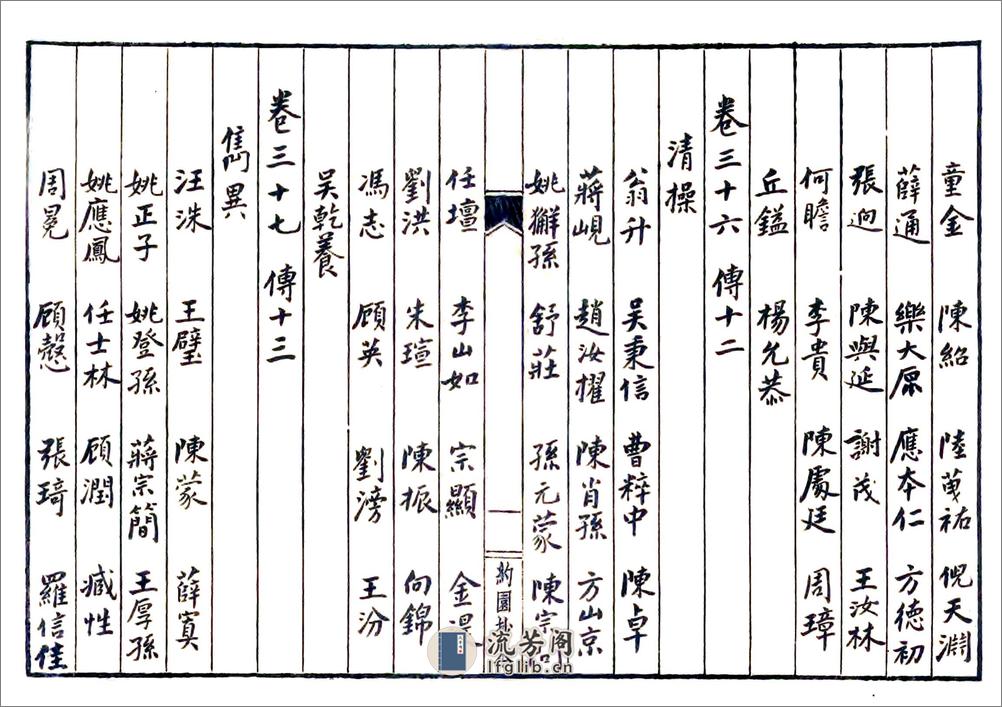 童金 陳紹 陸茂祐 倪天淵
薛通 樂大原 應本仁 方德初
張迥 陳與延 謝茂 王汝林
何瞻 李貴 陳處廷 周璋
丘鎰 楊允恭
卷三十六 傳十二
清操
翁升 吴秉信 曹粹中 陳卓
蔣峴 趙汝擢 陳肖孫 方山京
姚獬孫 舒莊 孫元蒙 陳宗
約園抄
任壇 李山如 宗顯 金
劉洪 朱瑄 陳振 向錦
馮志 顧英 劉滂 王汾
吴乾養
卷三十七 傳十三
雋異
汪洙 王璧 陳蒙 薛寘
姚正子 姚登孫 蔣宗簡 王厚孫
姚應鳳 任士林 顧潤 臧性
周冕 顧慤 張琦 羅信佳
流芳阁
lfglib.cn